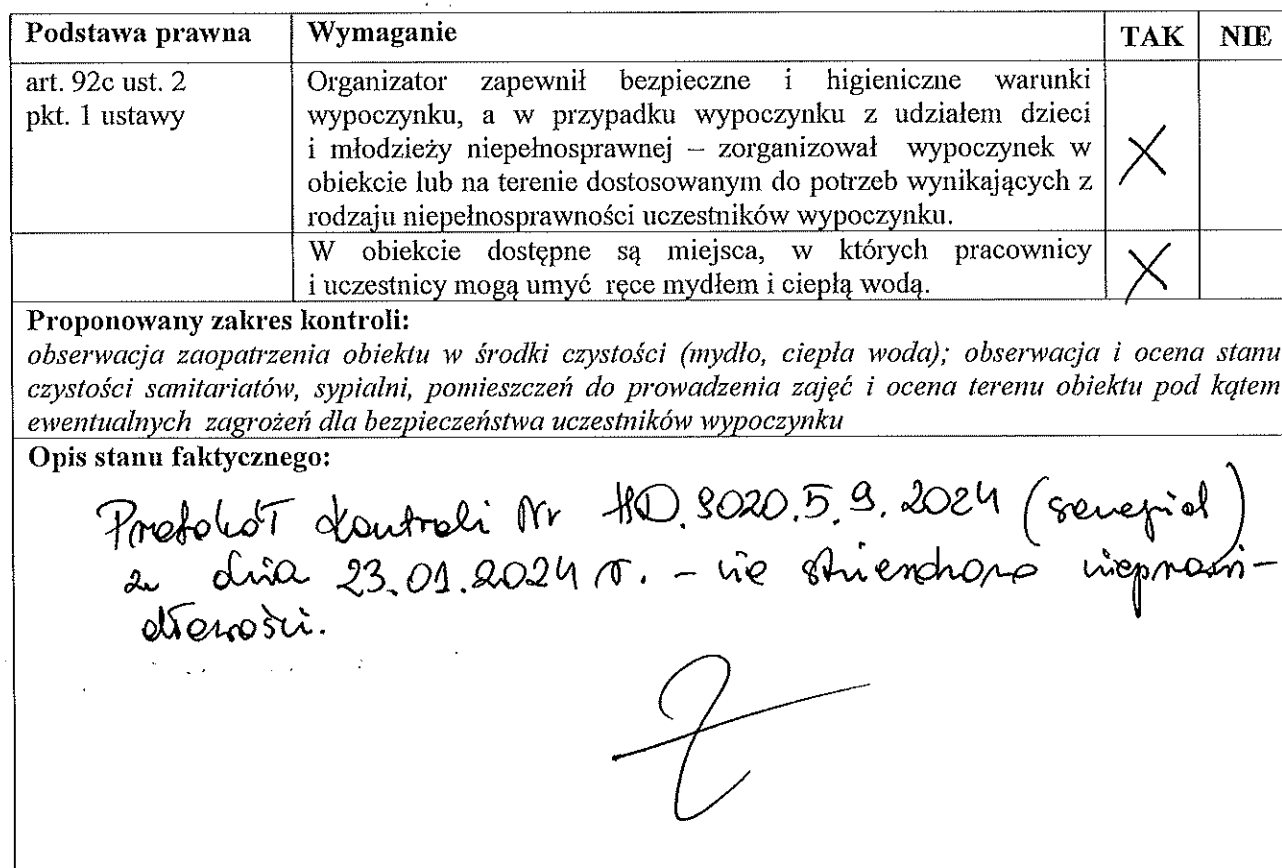 Podstawa prawna Wymaganie TAK NIE
art. 92c ust. 2
pkt. 1 ustawy
Organizator zapewnił bezpieczne i higieniczne warunki
wypoczynku, a w przypadku wypoczynku z udziałem dzieci
i młodzieży niepełnosprawnej – zorganizował wypoczynek w
obiekcie lub na terenie dostosowanym do potrzeb wynikających z
rodzaju niepełnosprawności uczestników wypoczynku.
X
W obiekcie dostępne są miejsca, w których pracownicy
i uczestnicy mogą umyć ręce mydłem i ciepłą wodą.
X
Proponowany zakres kontroli:
obserwacja zaopatrzenia obiektu w środki czystości (mydło, ciepła woda); obserwacja i ocena stanu
czystości sanitariatów, sypialni, pomieszczeń do prowadzenia zajęć i ocena terenu obiektu pod kątem
ewentualnych zagrożeń dla bezpieczeństwa uczestników wypoczynku
Opis stanu faktycznego:
Protokół kontroli Nr HD.9020.5.9.2024 (sanepid)
z dnia 23.01.2024 r. - nie stwierdzono nieprawi-
dłowości.